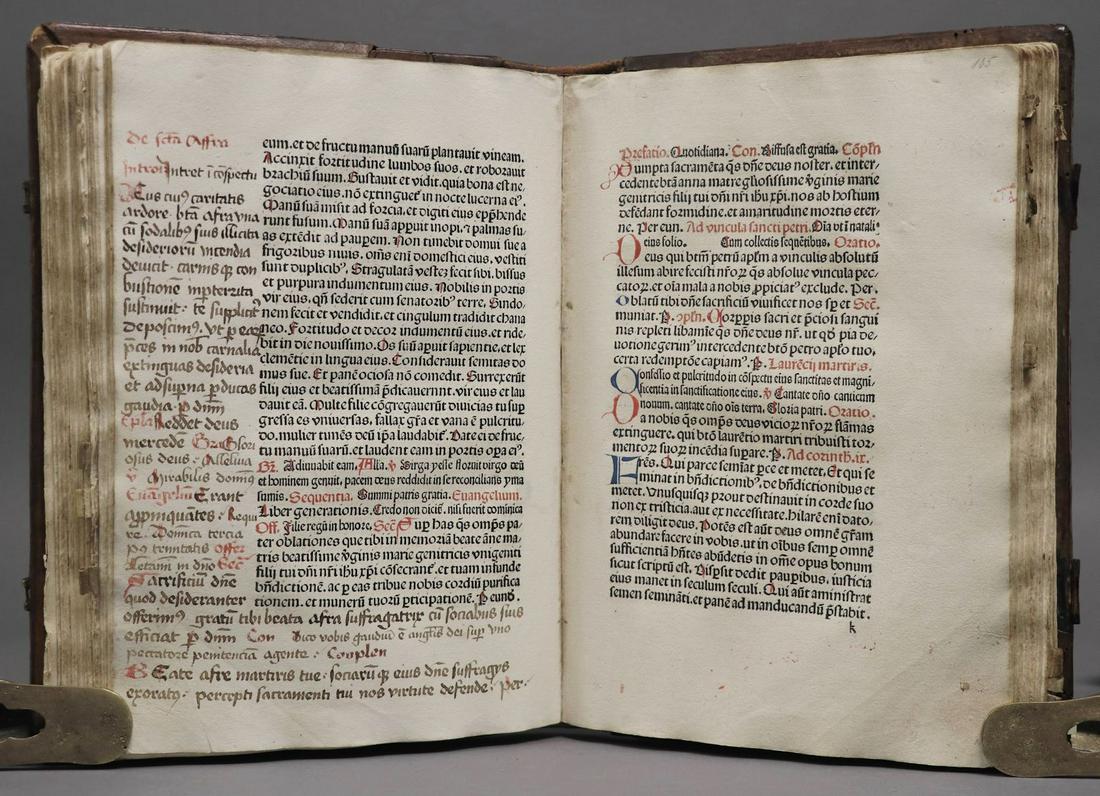 De sctā Affra
Introi Intret ī cōspectu
Deus cuiꝰ caritatis
ardore bt̄a afra vna
cū sodalibꝰ suis illicita
desideriorū incendia
deuicit carnis qꝫ con
bustionē inpterrita
sustinuit te supplicit̾
deposcimꝰ vt p eoꝝ
p̄ces in nob̾ carnalia
extinguas desideria
et adsup̄na pducas
gaudia p dn̄m
Epl̄a Reddet deus
mercedē Gra Glori
osus deus Alleluia
v̾ Mirabilis dominꝰ
Euangeliū Erant
appīnquātes Requi
re Domīca tercia
pꝰ trinitatis Offer
Letamī in dn̄o Sec̄
Sacrificiū dn̄e
quod desideranter
offerimꝰ gratū tibi beata afra suffragatrix cū sociabus suis
efficiat p dn̄m Con Dico vobis gaudiū ē angl̄is dei sup̱ vno
peccatore penitenciā agente Complen
Beate afre martiris tue sociarūqꝫ eius dn̄e suffragys
exoratꝰ percepti sacramenti tui nos virtute defende Per
eum. et de fructu manuū suarū plantauit vineam.
Accinxit fortitudine lumbos suos. et roborauit
brachiū suum. Gustauit et vidit. quia bona est ne-
gociatio eius. nō extinguet̾ in nocte lucerna eiꝰ.
Manū suā misit ad forcia. et digiti eius epp̄hende
runt fusum. Manū suā apuit inopi. et palmas su-
as extēdit ad paupem. Non timebit domui sue a
frigoribus niuis. om̄s eni domestici eius. vestiti
sunt duplicibꝰ. Stragulatā vestez fecit sibi. bissus
et purpura indumentum eius. Nobilis in portis
vir eius. qn̄ sederit cum senatoribꝰ terre. Sindo-
nem fecit et vendidit. et cingulum tradidit chana
neo. Fortitudo et decor indumentū eius. et ride-
bit in die nouissimo. Os suū apuit sapientie. et lex
clemētie in lingua eius. Considerauit semitas do
mus sue. Et panē ociosa nō comedit. Surrexerūt
filij eius et beatissimā p̄dicauerunt. vir eius et lau
dauit eā. Multe filie cōgregauerūt diuicias tu sup
gressa es vniuersas. fallax gr̄a et vana ē pulcritu-
do. mulier timēs deū ip̄a laudabit̾. Date ei de fruc-
tu manuū suarū. et laudent eam in portis oꝑa eiꝰ.
Gr̄. Adiuuabit eam. Alla. v̾ Virga yesse floruit virgo deū
et hominem genuit. pacem deus reddidit in se reconcilians yma
sumis. Sequentia. Summi patris gratia. Euangelium.
Liber generationis. Credo non dicit̾. nisi fuerit dominica
Off. Filie regū in honore. Sec̄ Sup has qs̄ omp̄s pa-
ter oblationes que tibi in memoriā beate āne ma-
tris beatissime v̾ginis marie genitricis vnigeniti
filij tui dn̄i nr̄i ihū xp̄i cōsecrant̾. et tuam infunde
bn̄dictionē. ac p eas tribue nobis cordiū purifica
tionem. et munerū tuorū pticipationē. P eund̾.
105
Prefatio. Quotidiana. Con. Diffusa est gratia. Cōpl̄n
Sumpta sacramēta qs̄ dn̄e deus noster. et inter-
cedente bt̄ā anna matre gliosissime v̾ginis marie
genitricis filij tui dn̄i nr̄i ihū xp̄i. nos ab hostium
defēdant formidine. et amaritudine mortis eter-
ne. Per eun. Ad vincula sancti petri. Oīa vt ī natali
eius folio. Cum collectis sequētibus. Oratio.
Deus qui bt̄m petrū apl̄m a vinculis absolutū
illesum abire fecisti nr̄oꝝ qs̄ absolue vincula pec-
catoꝝ. et oīa mala a nobis ꝓpiciatꝰ exclude. Per.
Oblatū tibi dn̄e sacrificiū viuificet nos sp̱ et Sec̄.
muniat. P. Cōpl̄n. Corꝑis sacri et p̄ciosi sangui
nis repleti libamīe qs̄ dn̄e deus nr̄. ut qd̾ pia de-
uotione gerimꝰ intercedente bt̄o petro apl̄o tuo,
certa redemptōe capiamꝰ. P. Laurēcij martiris.
Confessio et pulcritudo in cōspectu eius sanctitas et magni-
ficentia in sanctificatione eius. v̾ Cantate dn̄o canticum
nouum. cantate dn̄o oīs terra. Gloria patri. Oratio.
Da nobis qs̄ omp̄s deus vicioꝝ nr̄oꝝ flāmas
extinguere. qui bt̄o laurētio martiri tribuisti tor-
mentoꝝ suoꝝ incēdia supare. P. Ad corinth. ix.
Fr̄es. Qui parce semīat pce et metet. Et qui se
minat in bn̄dictionibꝰ. de bn̄dictionibus et
metet. Vnusquisqꝫ prout destinauit in corde suo
non ex tristicia. aut ex necessitate. hilarē eni dato-
rem diligit deus. Potēs est aūt deus omnē gr̄am
abundare facere in vobis. ut in oībus semp omnē
sufficientiā hn̄tes abūdetis in om̄e opus bonum
sicut scriptū est. Dispsit dedit paupibus. iusticia
eius manet in seculum seculi. Qui aūt aministrat
semen semināti. et panē ad manducandū p̄stabit.
k